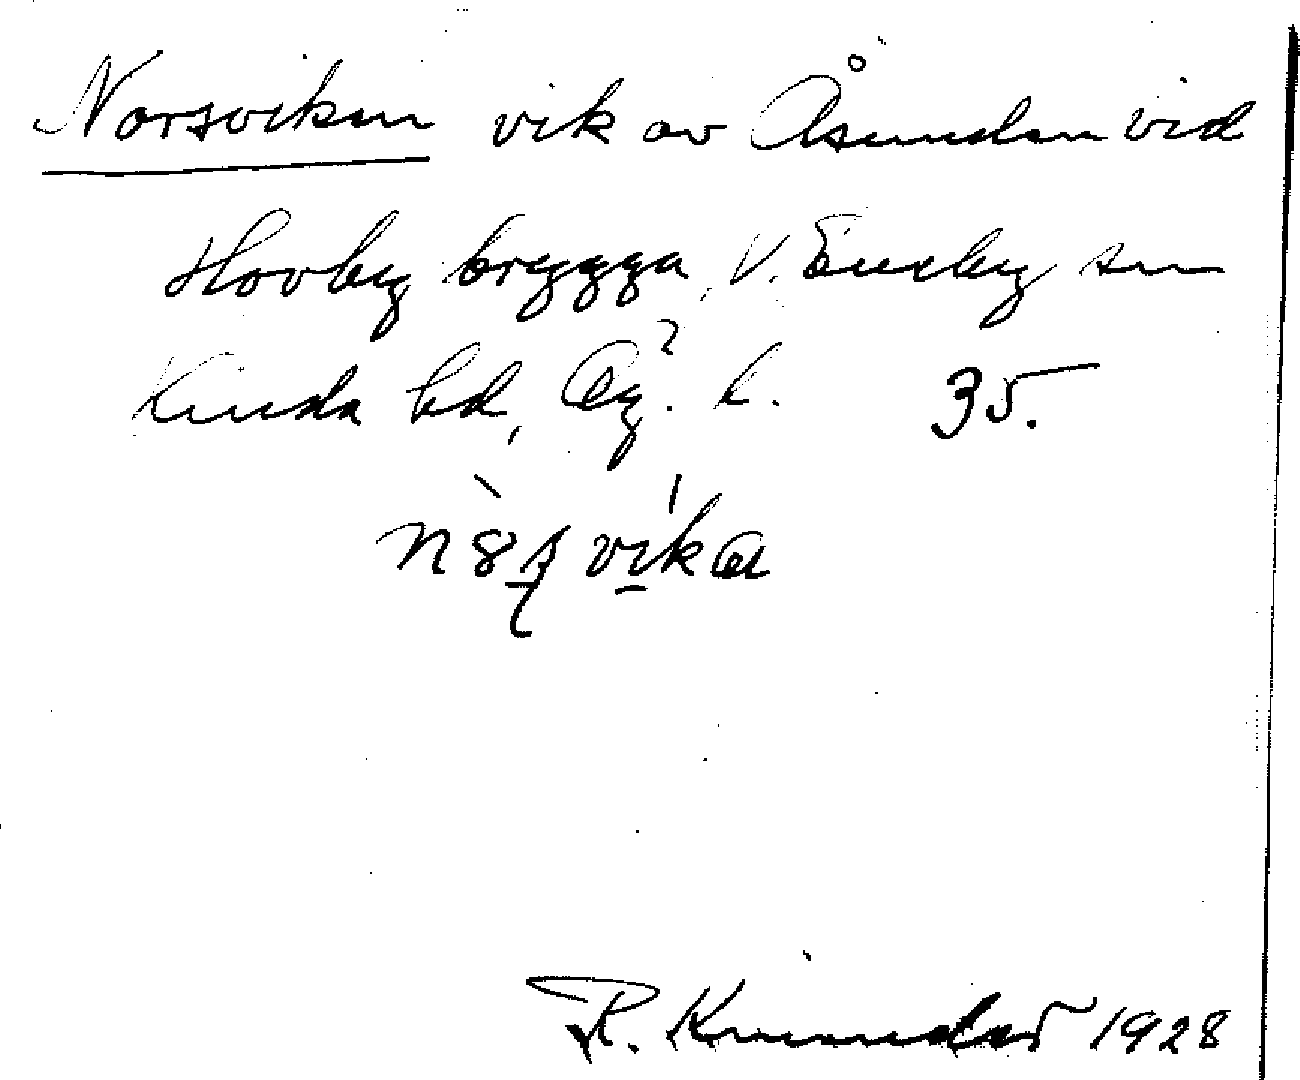 Norsviken vik av Åsunden vid
Hovby brygga, V. Eneby sn
Kinda hd, Ög. l. 35.
R. 1928